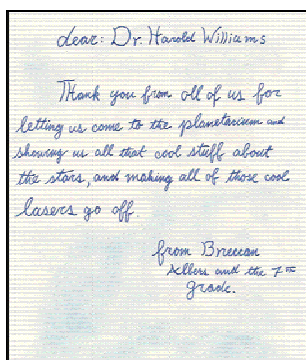 dear: Dr. Harold Williams
Thank you from all of us for
letting us come to the planetarium and
showing us all that cool stuff about
the stars, and making all of those cool
lasers go off
from Breean
Albers and the 7th
grade.